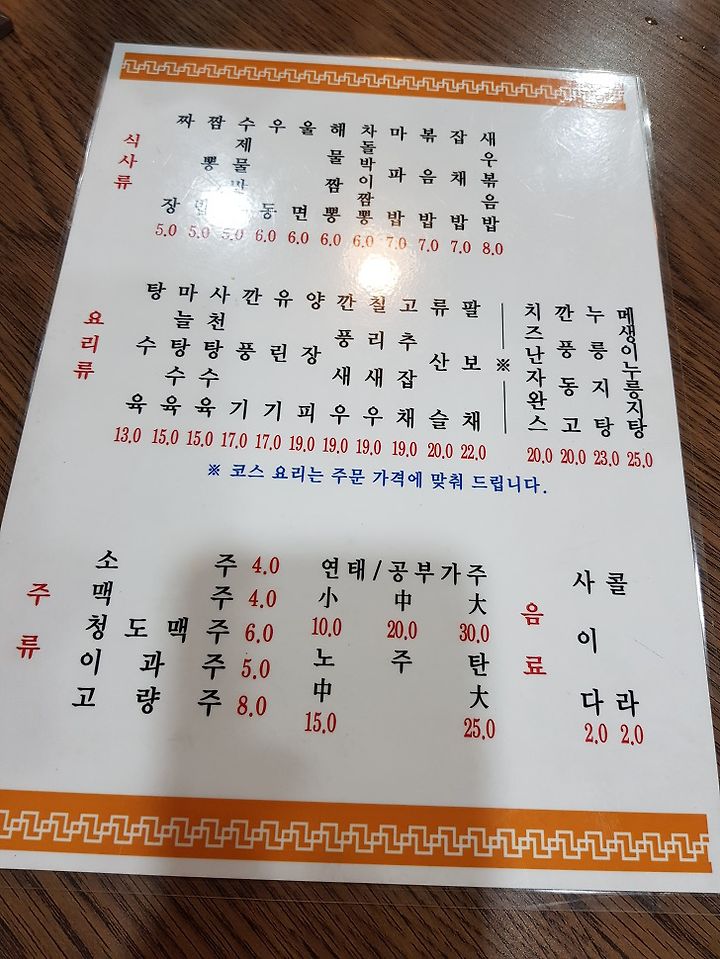 식사류
짜장 5.0
5.0
5.0
우동 6.0
울면 6.0
해물짬뽕 6.0
차돌박이짬뽕 6.0
마파밥 7.0
볶음밥 7.0
잡채밥 7.0
새우볶음밥 8.0
요리류
탕수육 13.0
마늘탕수육 15.0
사천탕수육 15.0
깐풍기 17.0
유린기 17.0
양장피 19.0
깐풍새우 19.0
칠리새우 19.0
고추잡채 19.0
류산슬 20.0
팔보채 22.0
※
치즈난자완스 20.0
깐풍동고 20.0
누릉지탕 23.0
메생이누릉지탕 25.0
※ 코스 요리는 주문 가격에 맞춰 드립니다.
주류
소주 4.0
맥주 4.0
청도맥주 6.0
이과주 5.0
고량주 8.0
연태/공부가주
小 中 大
10.0 20.0 30.0
노주탄
中 大
15.0 25.0
음료
사이다 2.0
콜라 2.0